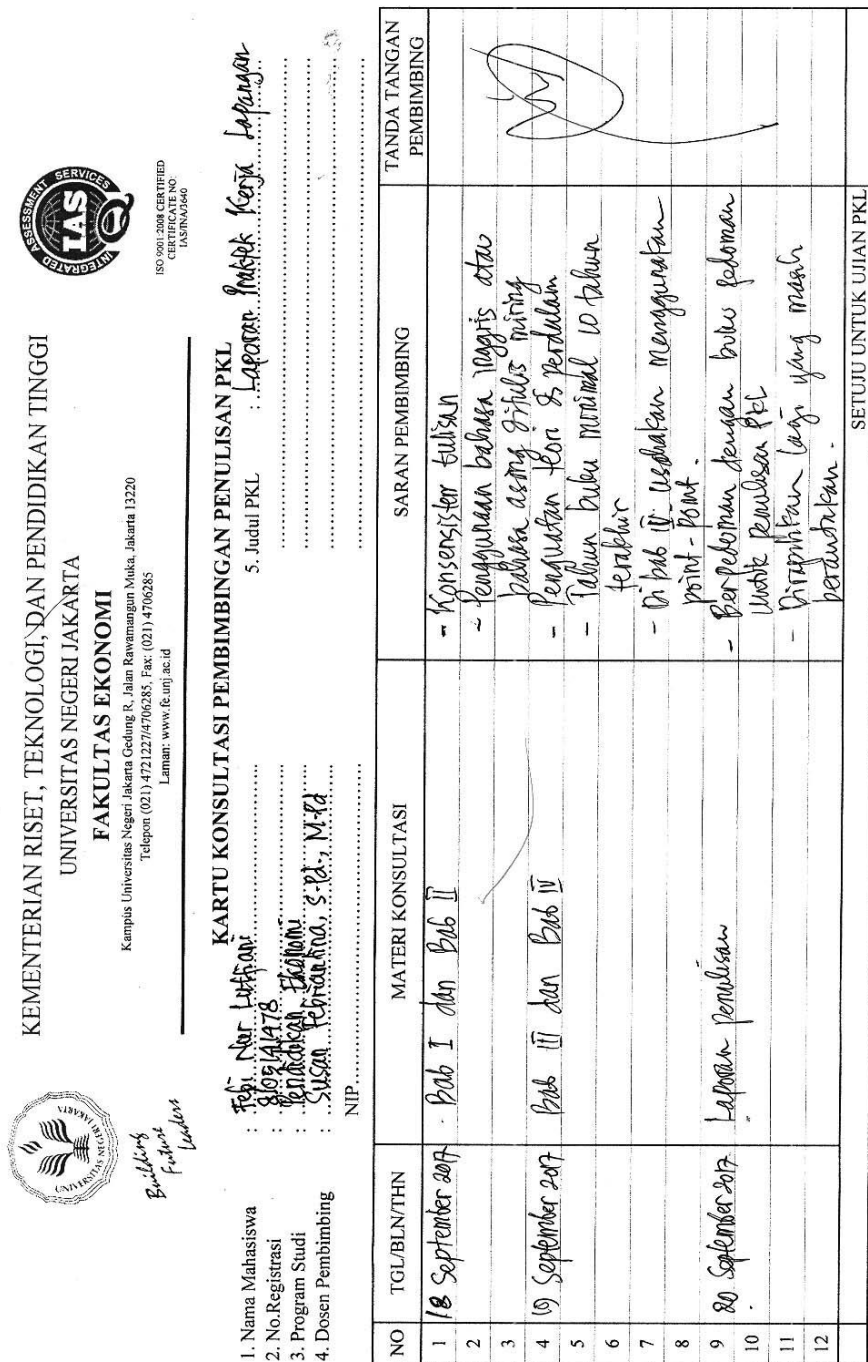 KEMENTERIAN RISET, TEKNOLOGI, DAN PENDIDIKAN TINGGI
UNIVERSITAS NEGERI JAKARTA
FAKULTAS EKONOMI
Kampus Universitas Negeri Jakarta Gedung R, Jalan Rawamangun Muka, Jakarta 13220
Telepon (021) 4721227/4706285, Fax: (021) 4706285
Laman: www.fe.unj.ac.id
UNIVERSITAS NEGERI JAKARTA
Building
Future
Leaders
INTEGRATED ASSESSMENT SERVICES
IAS
ISO 9001:2008 CERTIFIED
CERTIFICATE NO:
IAS/INA/3640
KARTU KONSULTASI PEMBIMBINGAN PENULISAN PKL
1. Nama Mahasiswa : Febi Nur Luthfiani
2. No.Registrasi : 8105141478
3. Program Studi : Pendidikan Ekonomi
4. Dosen Pembimbing : Susan Febriantina, S.Pd., M.Pd
NIP
5. Judul PKL : Laporan Praktek Kerja Lapangan
NO TGL/BLN/THN MATERI KONSULTASI SARAN PEMBIMBING TANDA TANGAN PEMBIMBING
1 18 September 2017 Bab I dan Bab II - Konsensister tulisan
2 - Penggunaan bahasa inggris atau
3 bahasa asing ditulis miring
4 19 September 2017 Bab III dan Bab IV - Penguatan teori & perdalam
5 - Tahun buku minimal 10 tahun
6 terakhir
7 - Di bab IV usahakan menggunakan
8 point-point.
9 20 September 2017 Laporan penulisan - Berpedoman dengan buku pedoman
10 untuk penulisan PKL
11 - Dirapihkan lagi yang masih
12 berantakan.
SETUJU UNTUK UJIAN PKL